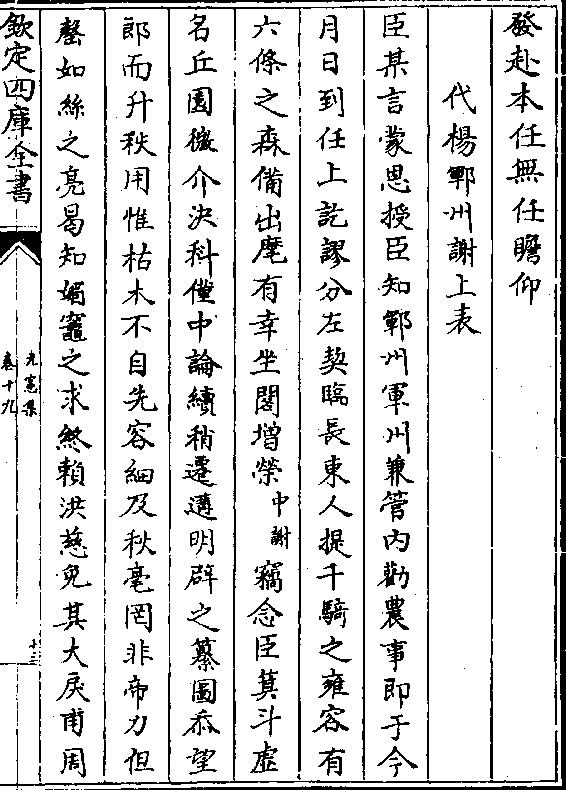 發赴本任無任瞻仰
代楊鄆州謝上表
臣某言蒙恩授臣知鄆州軍州兼管內勸農事即于今
月日到任上訖謬分左契臨長東人提千騎之雍容有
六條之森備出麾有幸坐閤增榮中謝竊念臣箕斗虛
名丘園微介決科僅中論績稍遷遘明辟之纂圖忝望
郎而升秩用惟枯木不自先容細及秋毫罔非帝力但
罄如絲之亮曷知媚竈之求煞賴洪慈免其大戾甫周
欽定四庫全書
元憲集
卷十九
十三